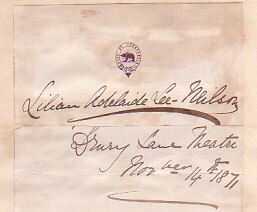 Lilian Adelaide Lee-Wilson
Drury Lane Theatre
Novber 14th 1871